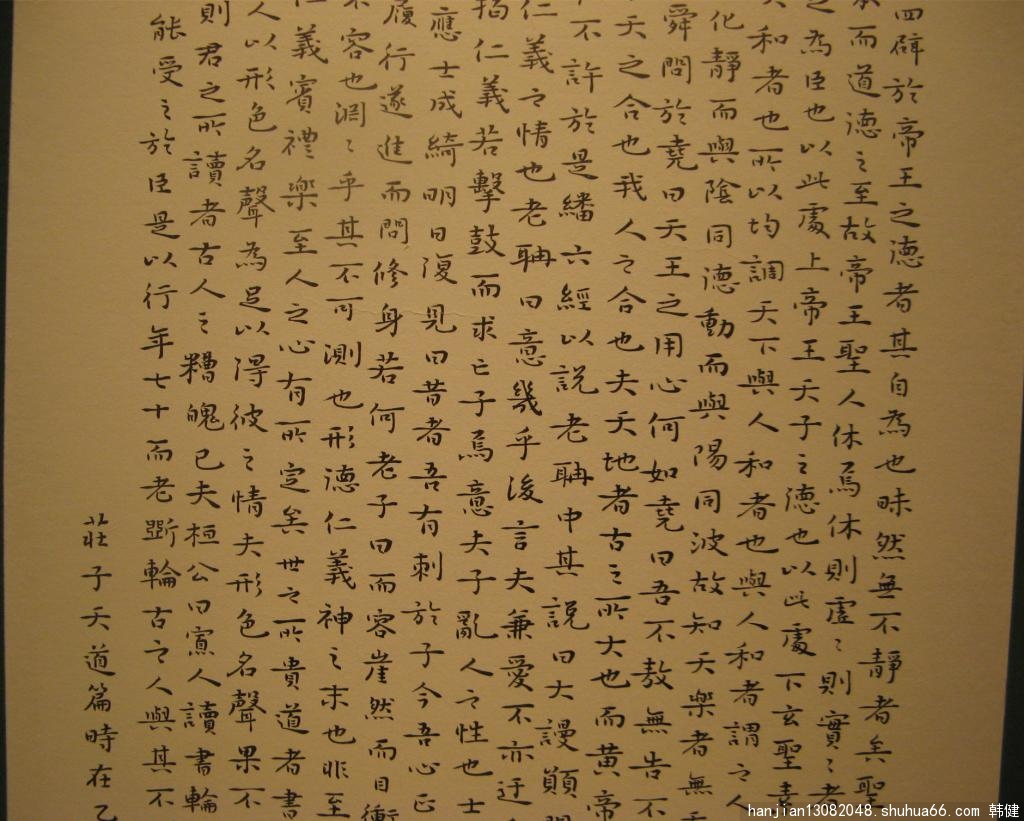 四辟於帝王之德者其自為也昧然無不靜者矣聖
而道德之至故帝王聖人休焉休則虛〻則實〻者
為臣也以此處上帝王天子之德也以此處下玄聖素
和者也所以均調天下與人和者也與人和者謂之人
化靜而與陰同德動而與陽同波故知天樂者無
舜問於堯曰天王之用心何如堯曰吾不敖無告不
天之合也我人之合也夫天地者古之所大也而黃帝
不許於是繙六經以說老聃中其說曰大謾願
仁義之情也老聃曰意幾乎後言夫兼愛不亦迂
揭仁義若擊鼓而求亡子焉意夫子亂人之性也士
應士成綺明日復見曰昔者吾有刺於子今吾心正
履行遂進而問修身若何老子曰而容崖然而目衝
容也淵〻乎其不可測也形德仁義神之末也非至
仁義賓禮樂至人之心有所定矣世之所貴道者書
人以形色名聲為足以得彼之情夫形色名聲果不
則君之所讀者古人之糟魄已夫桓公曰寡人讀書輪
能受之於臣是以行年七十而老斲輪古之人與其不
莊子天道篇時在乙
hanjian13082048.shuhua66.com 韩健